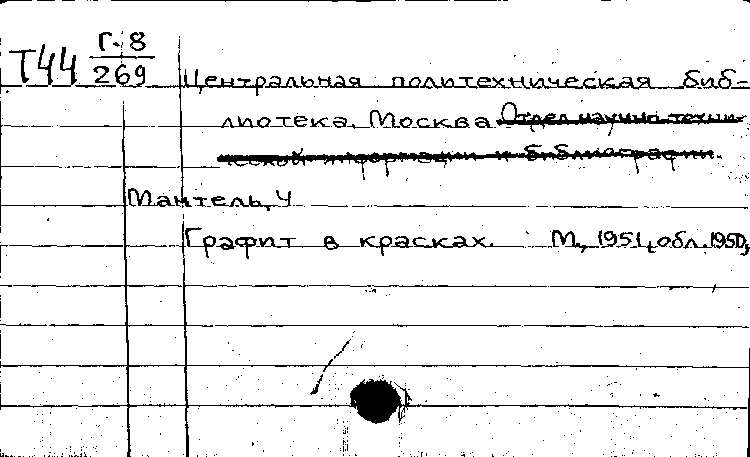 Т44 Г-8
269
Центральная политехническая биб-
лиотека. Москва. Отдел научно-техни-
ческой информации и библиографии.
Мантель, Ч
Графит в красках. М., 1951, обл. 1950,